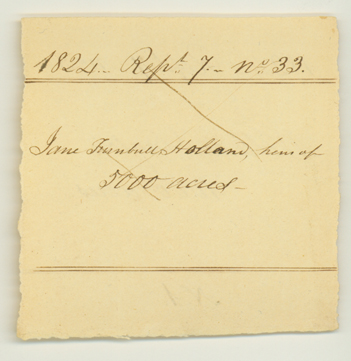 1824. Rept. 7. No. 33.
Jane Turnbull Holland, heirs of
5000 acres